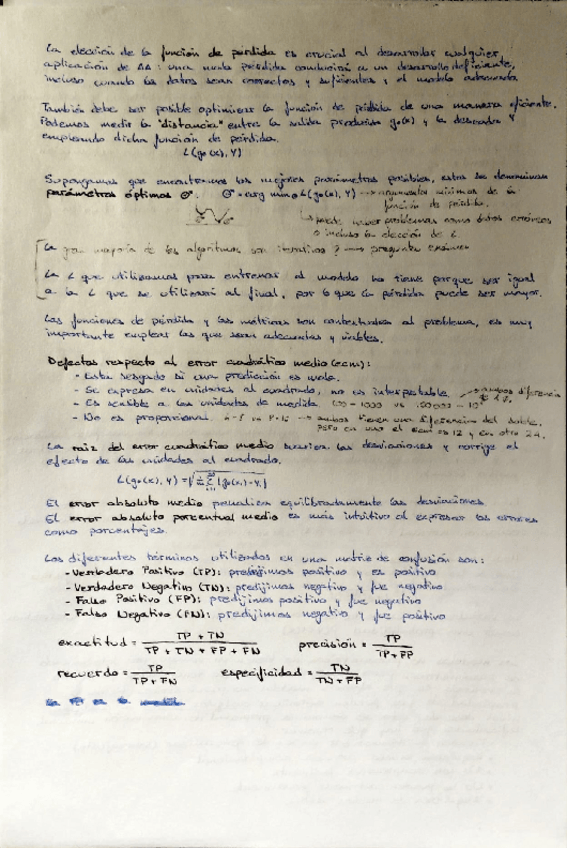 La elección de la función de pérdida es crucial al desarrollar cualquier
aplicación de AA: una mala pérdida conducirá a un desarrollo deficiente,
incluso cuando los datos sean correctos y suficientes y el modelo adecuado
También debe ser posible optimizar la función de pérdida de una manera eficiente.
Podemos medir la "distancia" entre la salida producida gθ(x) y la deseada Y
empleando dicha función de pérdida.
L(gθ(x), Y)
Supongamos que encontramos los mejores parámetros posibles, estos se denominan
parámetros óptimos θ*. θ* = arg min θ L(gθ(x), Y) → argumentos mínimos de la
función de pérdida.
↳ puede haber problemas como datos erróneos
o incluso la elección de L
La gran mayoría de los algoritmos son iterativos ? → pregunta examen
La L que utilizamos para entrenar al modelo no tiene porque ser igual
a la L que se utilizará al final, por lo que la pérdida puede ser mayor.
Las funciones de pérdida y las métricas son contextuales al problema, es muy
importante emplear las que sean adecuadas y viables.
Defectos respecto al error cuadrático medio (ecm):
- Esta sesgado si una predicción es mala.
- Se expresa en unidades al cuadrado, no es interpretable.
- Es sensible a las unidades de medida
- No es proporcional → ambos tienen una diferencia del doble,
pero en uno el ecm es 12 y en otro 24.
La raíz del error cuadrático medio suaviza las desviaciones y corrige el
efecto de las unidades al cuadrado.
El error absoluto medio penaliza equilibradamente las desviaciones
El error absoluto porcentual medio es más intuitivo al expresar los errores
como porcentajes.
Los diferentes términos utilizados en una matriz de confusión son:
- Verdadero Positivo (TP): predijimos positivo y es positivo
- Verdadero Negativo (TN): predijimos negativo y fue negativo
- Falso Positivo (FP): predijimos positivo y fue negativo
- Falso Negativo (FN): predijimos negativo y fue positivo
exactitud = TP + TN / TP + TN + FP + FN precisión = TP / TP + FP
recuerdo = TP / TP + FN especificidad = TN / TN + FP